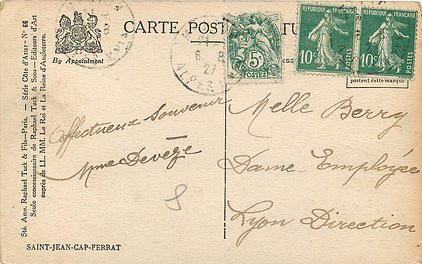 CARTE POST
By Appointment
Sté. Ame. Raphael Tuck & Fils - Paris. - Série Côte d'Azur - N° 66
Seule concessionnaire de Raphael Tuck & Sons - Editeurs d'Art
auprès de LL. MM. Le Roi et La Reine d'Angleterre.
5c
POSTES
RÉPUBLIQUE FRANÇAISE
10c
POSTES
RÉPUBLIQUE FRANÇAISE
10c
POSTES
portent cette marque
6 8
27
ALPES
Affectueux Souvenir
Mme Devèze
Melle Berry
Dame Employée
Lyon Direction
SAINT-JEAN-CAP-FERRAT